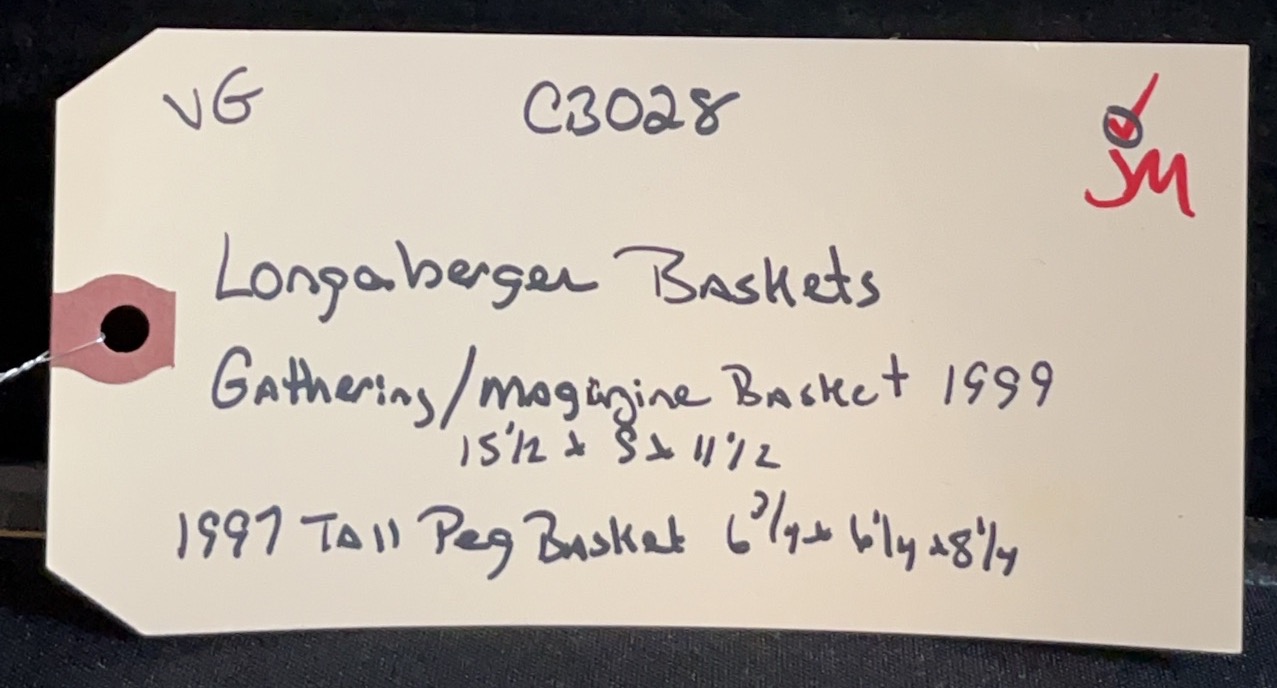 VG C3028 JM
Longaberger Baskets
Gathering/magazine Basket 1999
15 1/2 x 8 x 11 1/2
1997 Tall Peg Basket 6 3/4 x 6 1/4 x 8 1/4